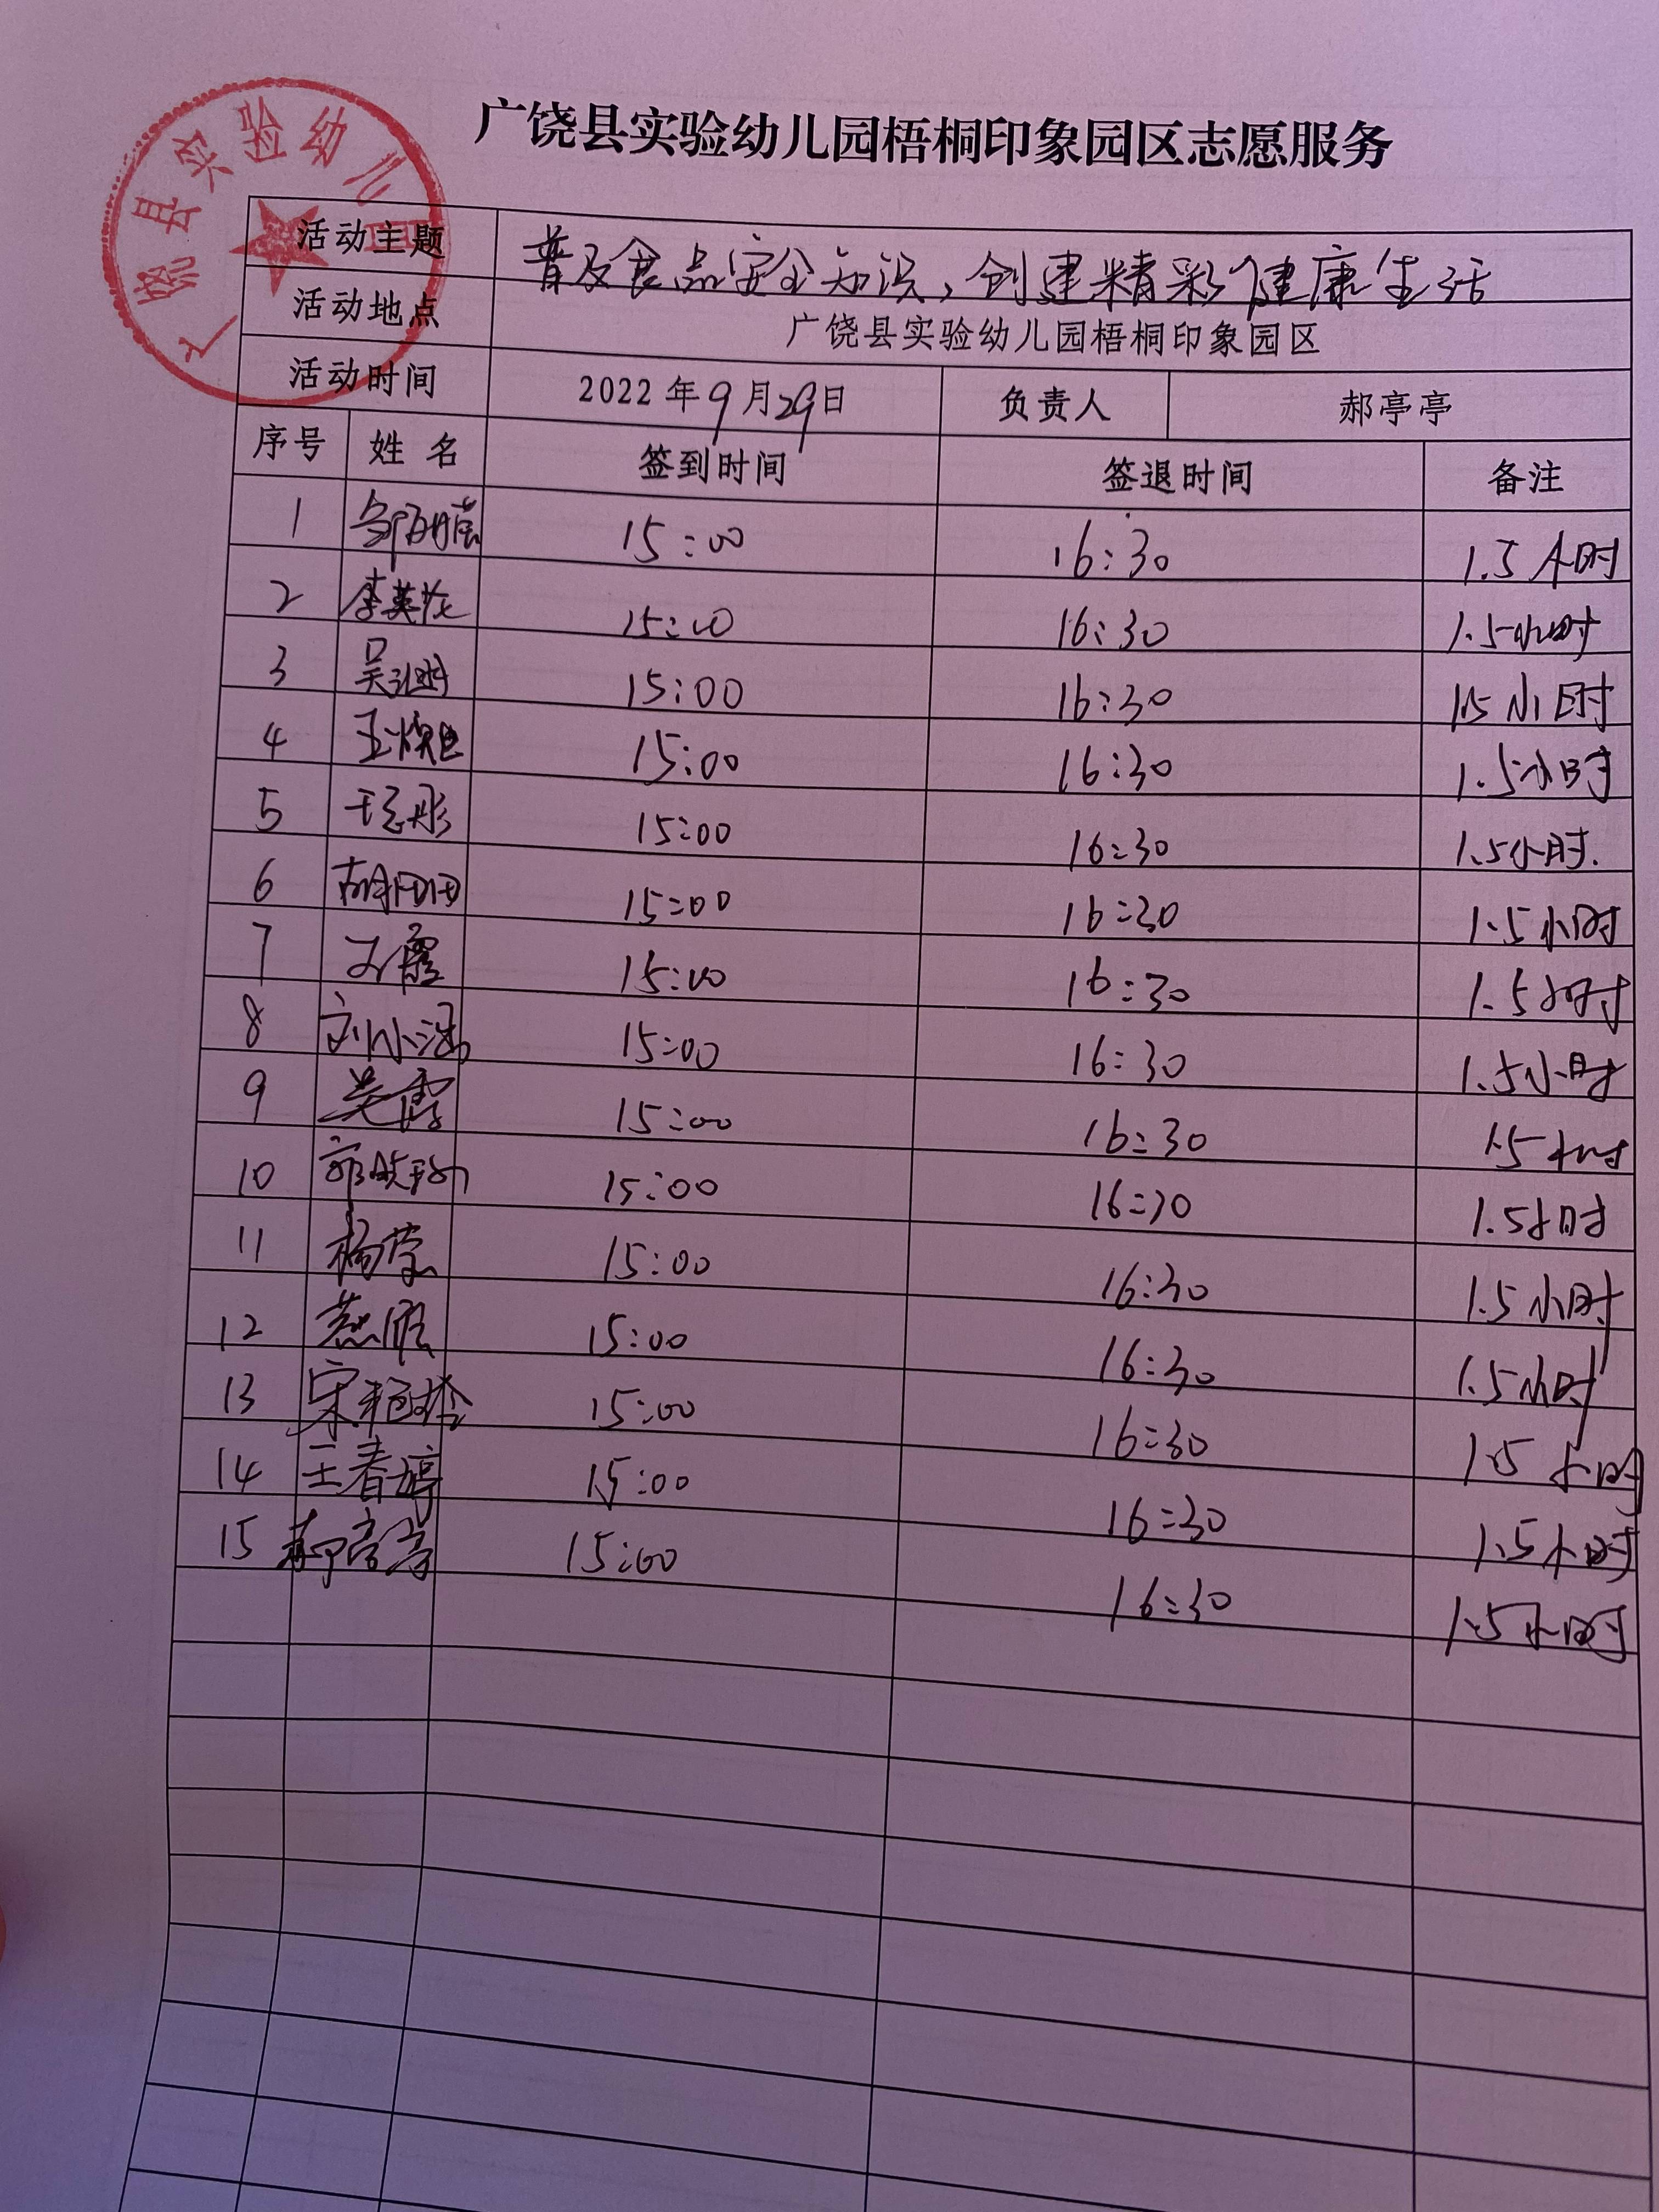 广饶县实验幼儿园梧桐印象园区志愿服务
广饶县实验幼儿园
活动主题 普及食品安全知识，创建精彩健康生活
活动地点 广饶县实验幼儿园梧桐印象园区
活动时间 2022年9月29日 负责人 郝亭亭
序号 姓名 签到时间 签退时间 备注
1 15:00 16:30 1.5小时
2 李英 15:00 16:30 1.5小时
3 吴 15:00 16:30 1.5小时
4 王 15:00 16:30 1.5小时
5 15:00 16:30 1.5小时.
6 胡田田 15:00 16:30 1.5小时
7 15:00 16:30 1.5小时
8 刘小涵 15:00 16:30 1.5小时
9 吴霞 15:00 16:30 1.5小时
10 郭 15:00 16:30 1.5小时
11 杨莹 15:00 16:30 1.5小时
12 燕 15:00 16:30 1.5小时
13 宋艳玲 15:00 16:30 1.5小时
14 王春婷 15:00 16:30 1.5小时
15 郝亭亭 15:00 16:30 1.5小时